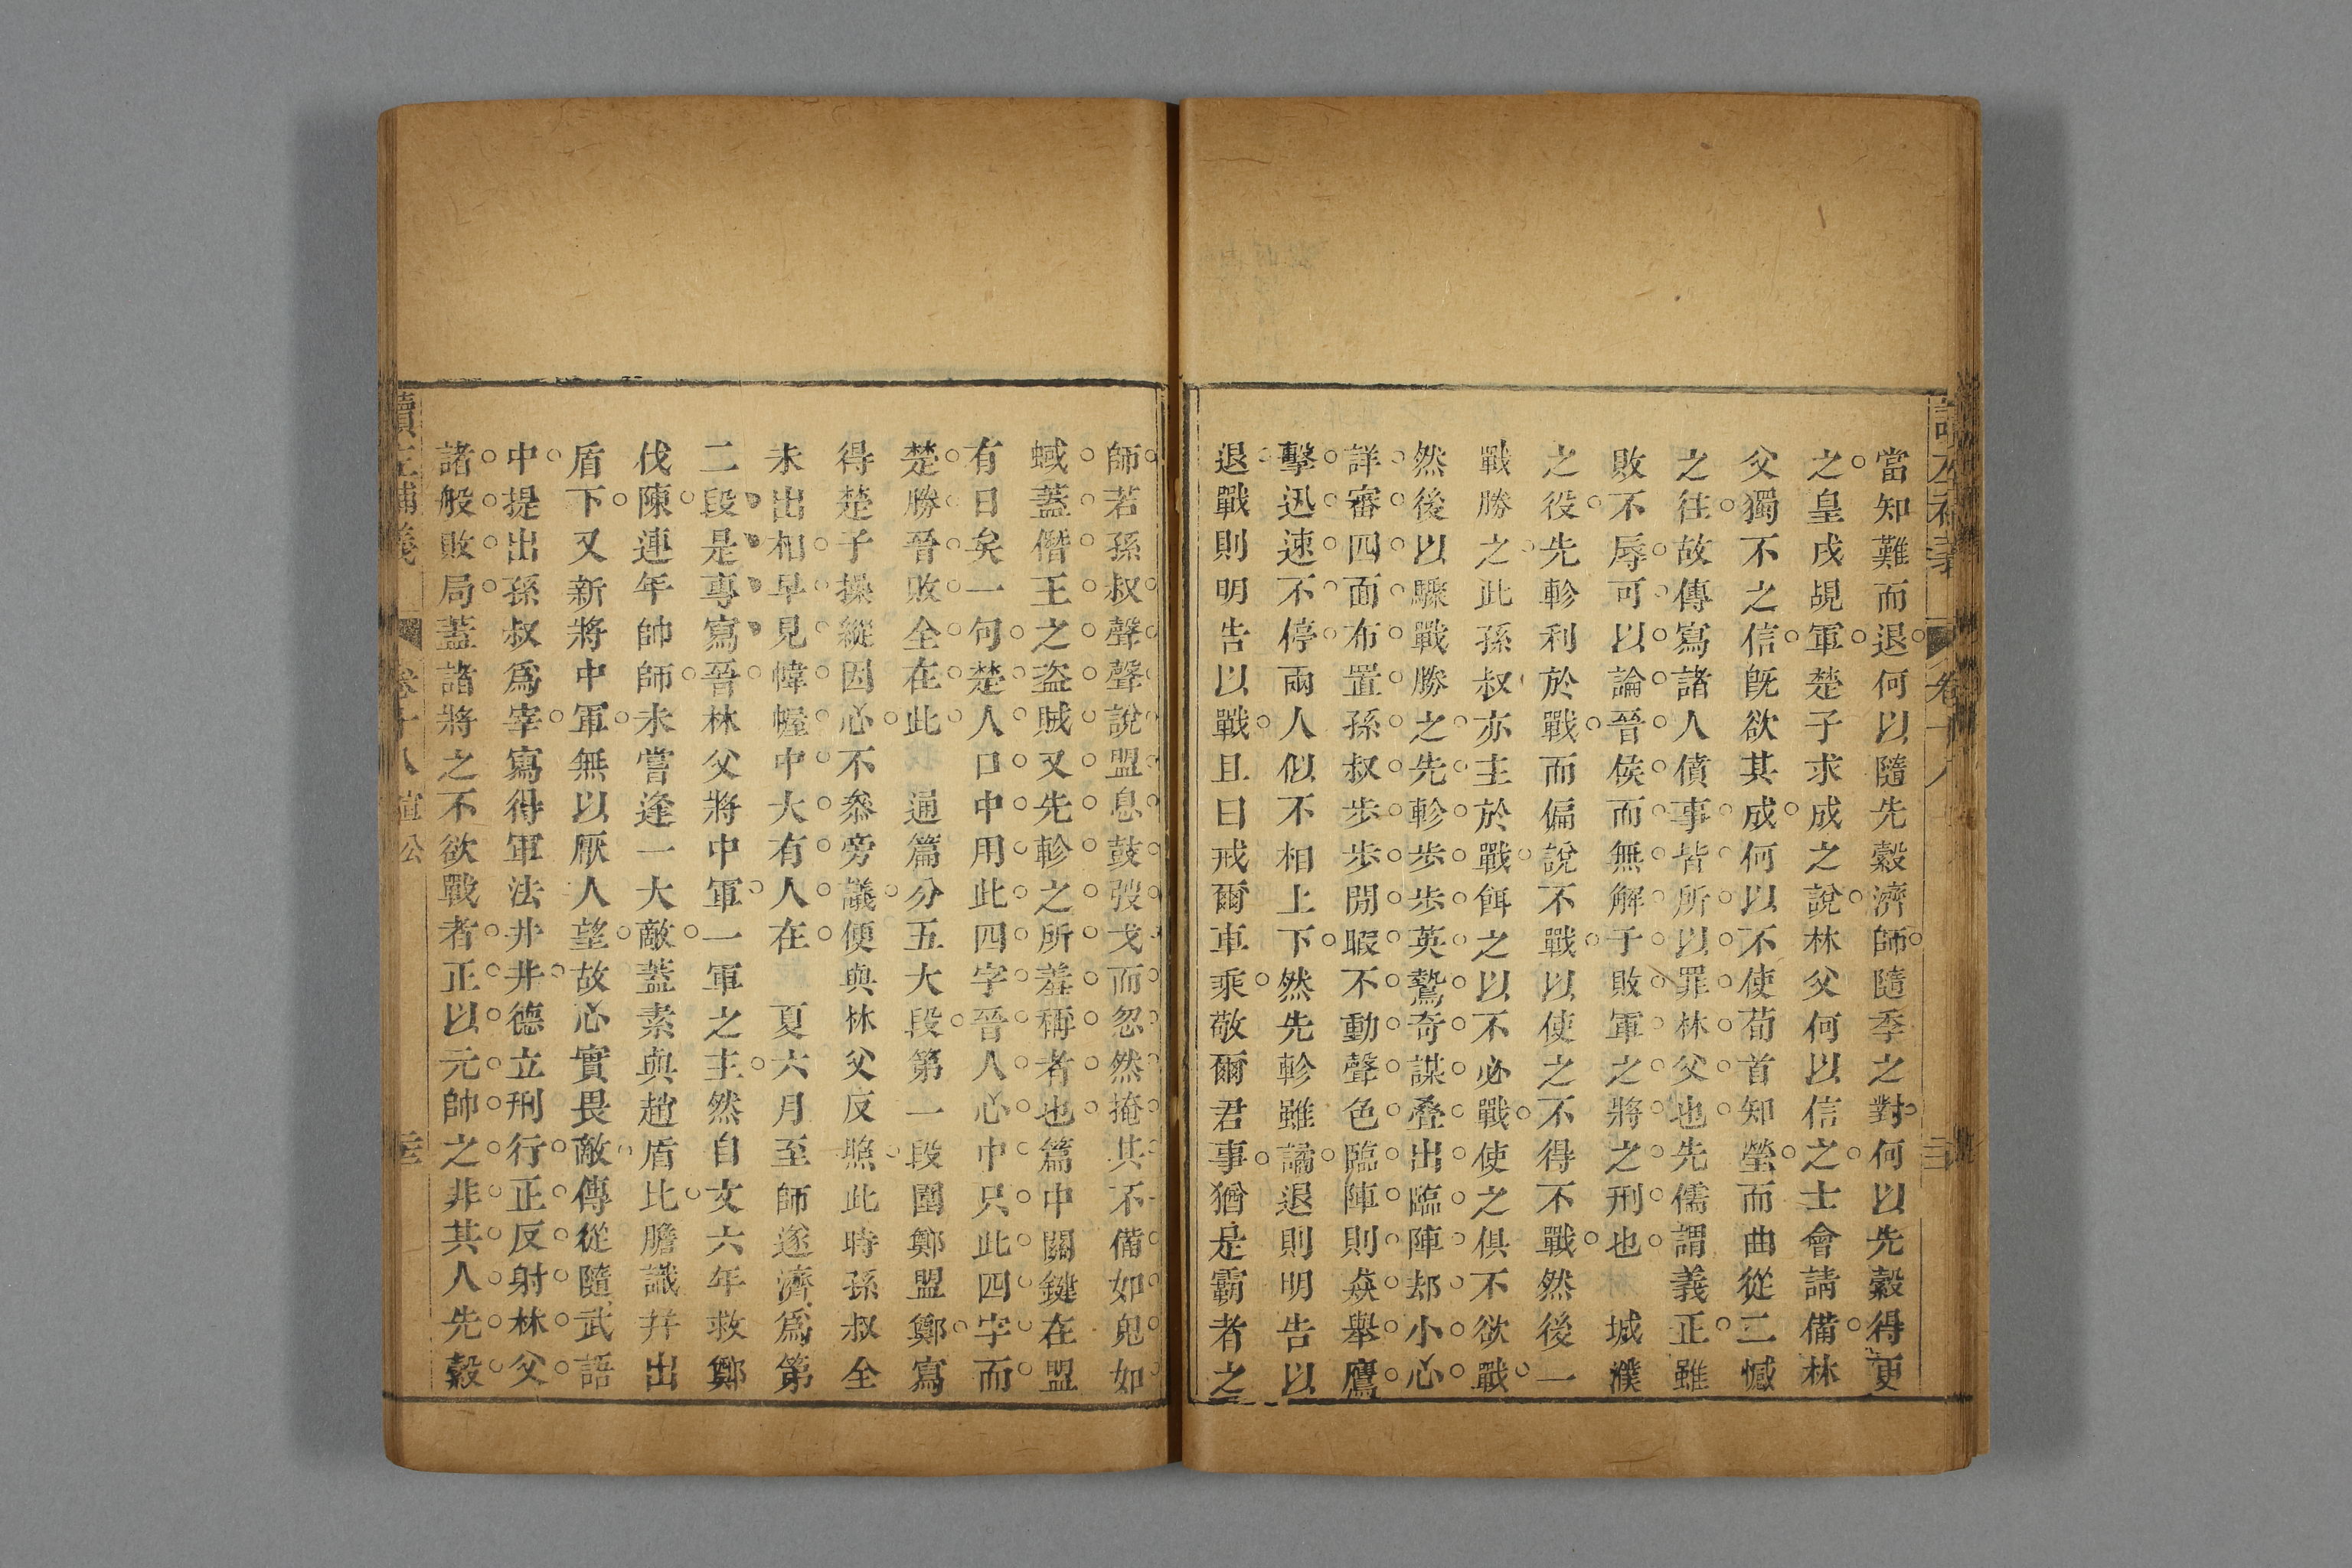 讀左補義 卷十八
當知難而退何以隨先縠濟師隨季之對何以先縠得更
之皇戌覘軍楚子求成之說林父何以信之士會請備林
父獨不之信旣欲其成何以不使荀首知罃而曲從二憾
之往故傳寫諸人僨事皆所以罪林父也先儒謂義正雖
敗不辱可以論晉侯而無解于敗軍之將之刑也 城濮
之役先軫利於戰而偏說不戰以使之不得不戰然後一
戰勝之此孫叔亦主於戰餌之以不必戰使之俱不欲戰
然後以驟戰勝之先軫步步英鷙奇謀叠出臨陣却小心
詳審四面布置孫叔步步閒暇不動聲色臨陣則猋舉鷹
擊迅速不停兩人似不相上下然先軫雖譎退則明告以
退戰則明告以戰且曰戒爾車乘敬爾君事猶是霸者之
師若孫叔聲聲說盟息鼓弢戈而忽然掩其不備如鬼如
蜮蓋僭王之盜賊又先軫之所羞稱者也篇中關鍵在盟
有日矣一句楚人口中用此四字晉人心中只此四字而
楚勝晉敗全在此 通篇分五大段第一段圍鄭盟鄭寫
得楚子操縱因心不叅旁議便與林父反照此時孫叔全
未出相早見幃幄中大有人在 夏六月至師遂濟爲第
二段是專寫晉林父將中軍一軍之主然自文六年救鄭
伐陳連年帥師未嘗逢一大敵蓋素與趙盾比膽識幷出
盾下又新將中軍無以厭人望故心實畏敵傳從隨武語
中提出孫叔爲宰寫得軍法井井德立刑行正反射林父
諸般敗局蓋諸將之不欲戰者正以元帥之非其人先縠
讀左補義 卷十八 宣公